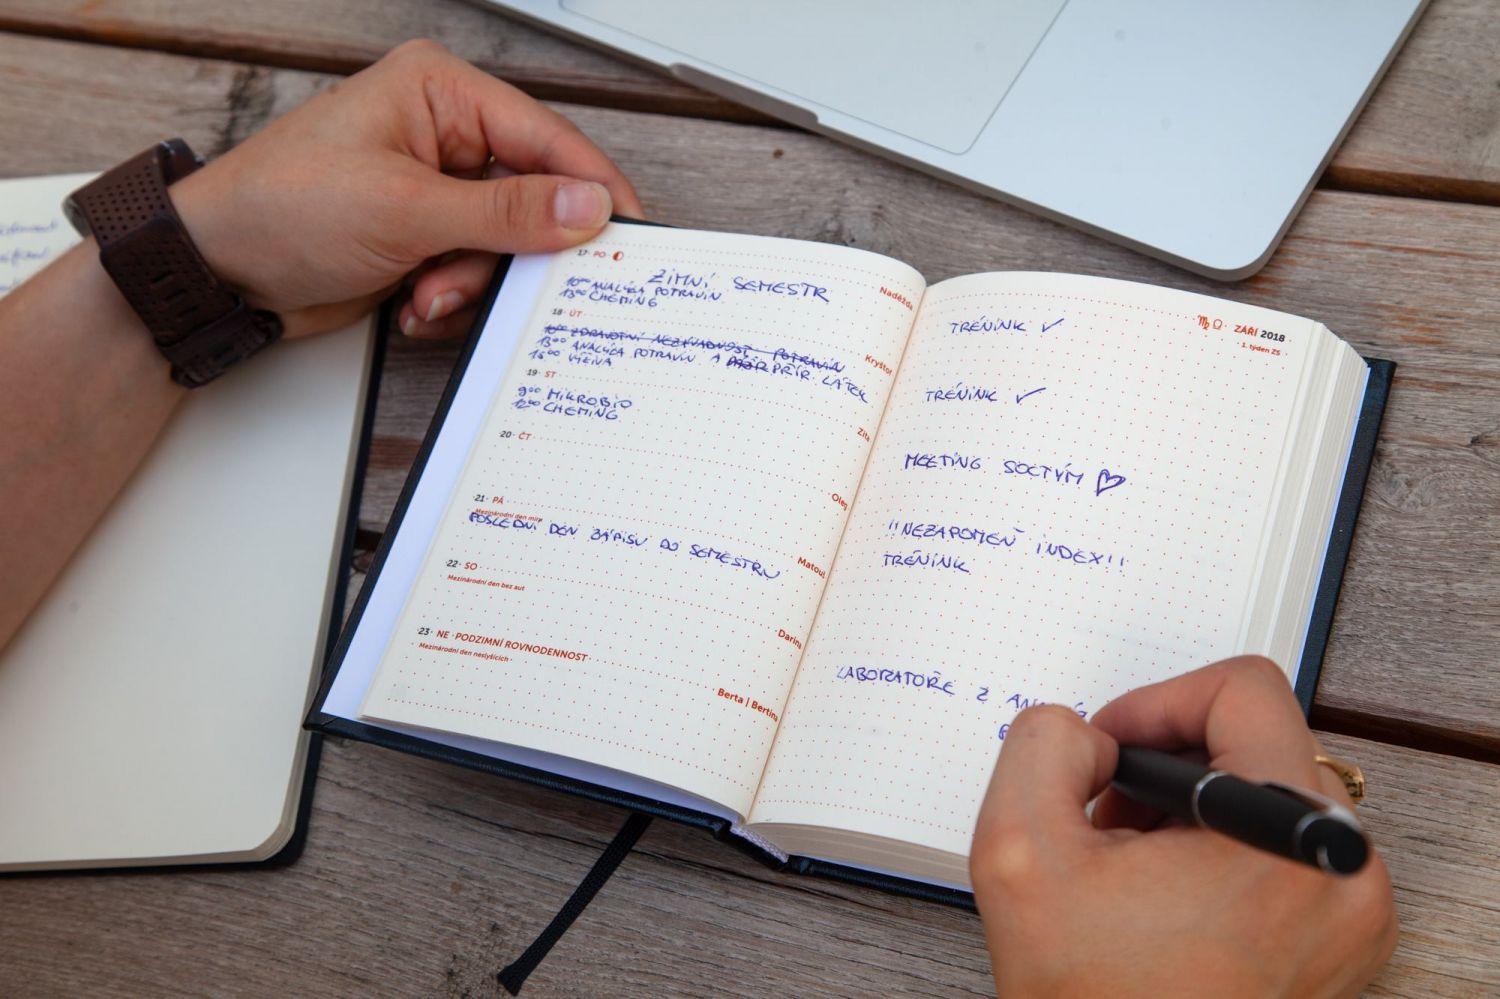 17 · PO
ZIMNÍ SEMESTR
10⁰⁰ ANALÝZA POTRAVIN
13⁰⁰ CHEMING
Naděžda
18 · ÚT
10⁰⁰ ZDRAVOTNÍ NEZÁVADNOST POTRAVIN
13⁰⁰ ANALÝZA POTRAVIN A PŘÍR. LÁTEK
Kryštof
VÝŽIVA
19 · ST
9⁰⁰ MIKROBIO
12⁰⁰ CHEMING
Zita
20 · ČT
Oleg
21 · PÁ
Mezinárodní den míru
POSLEDNÍ DEN ZÁPISU DO SEMESTRU
Matouš
22 · SO
Mezinárodní den bez aut
Darina
23 · NE · PODZIMNÍ ROVNODENNOST
Mezinárodní den neslyšících
Berta | Bertina
ZÁŘÍ 2018
1. týden ZS
TRÉNINK ✓
TRÉNINK ✓
MEETING SOCTÝM ♡
!!NEZAPOMEŇ INDEX!!
TRÉNINK
LABORATOŘE Z